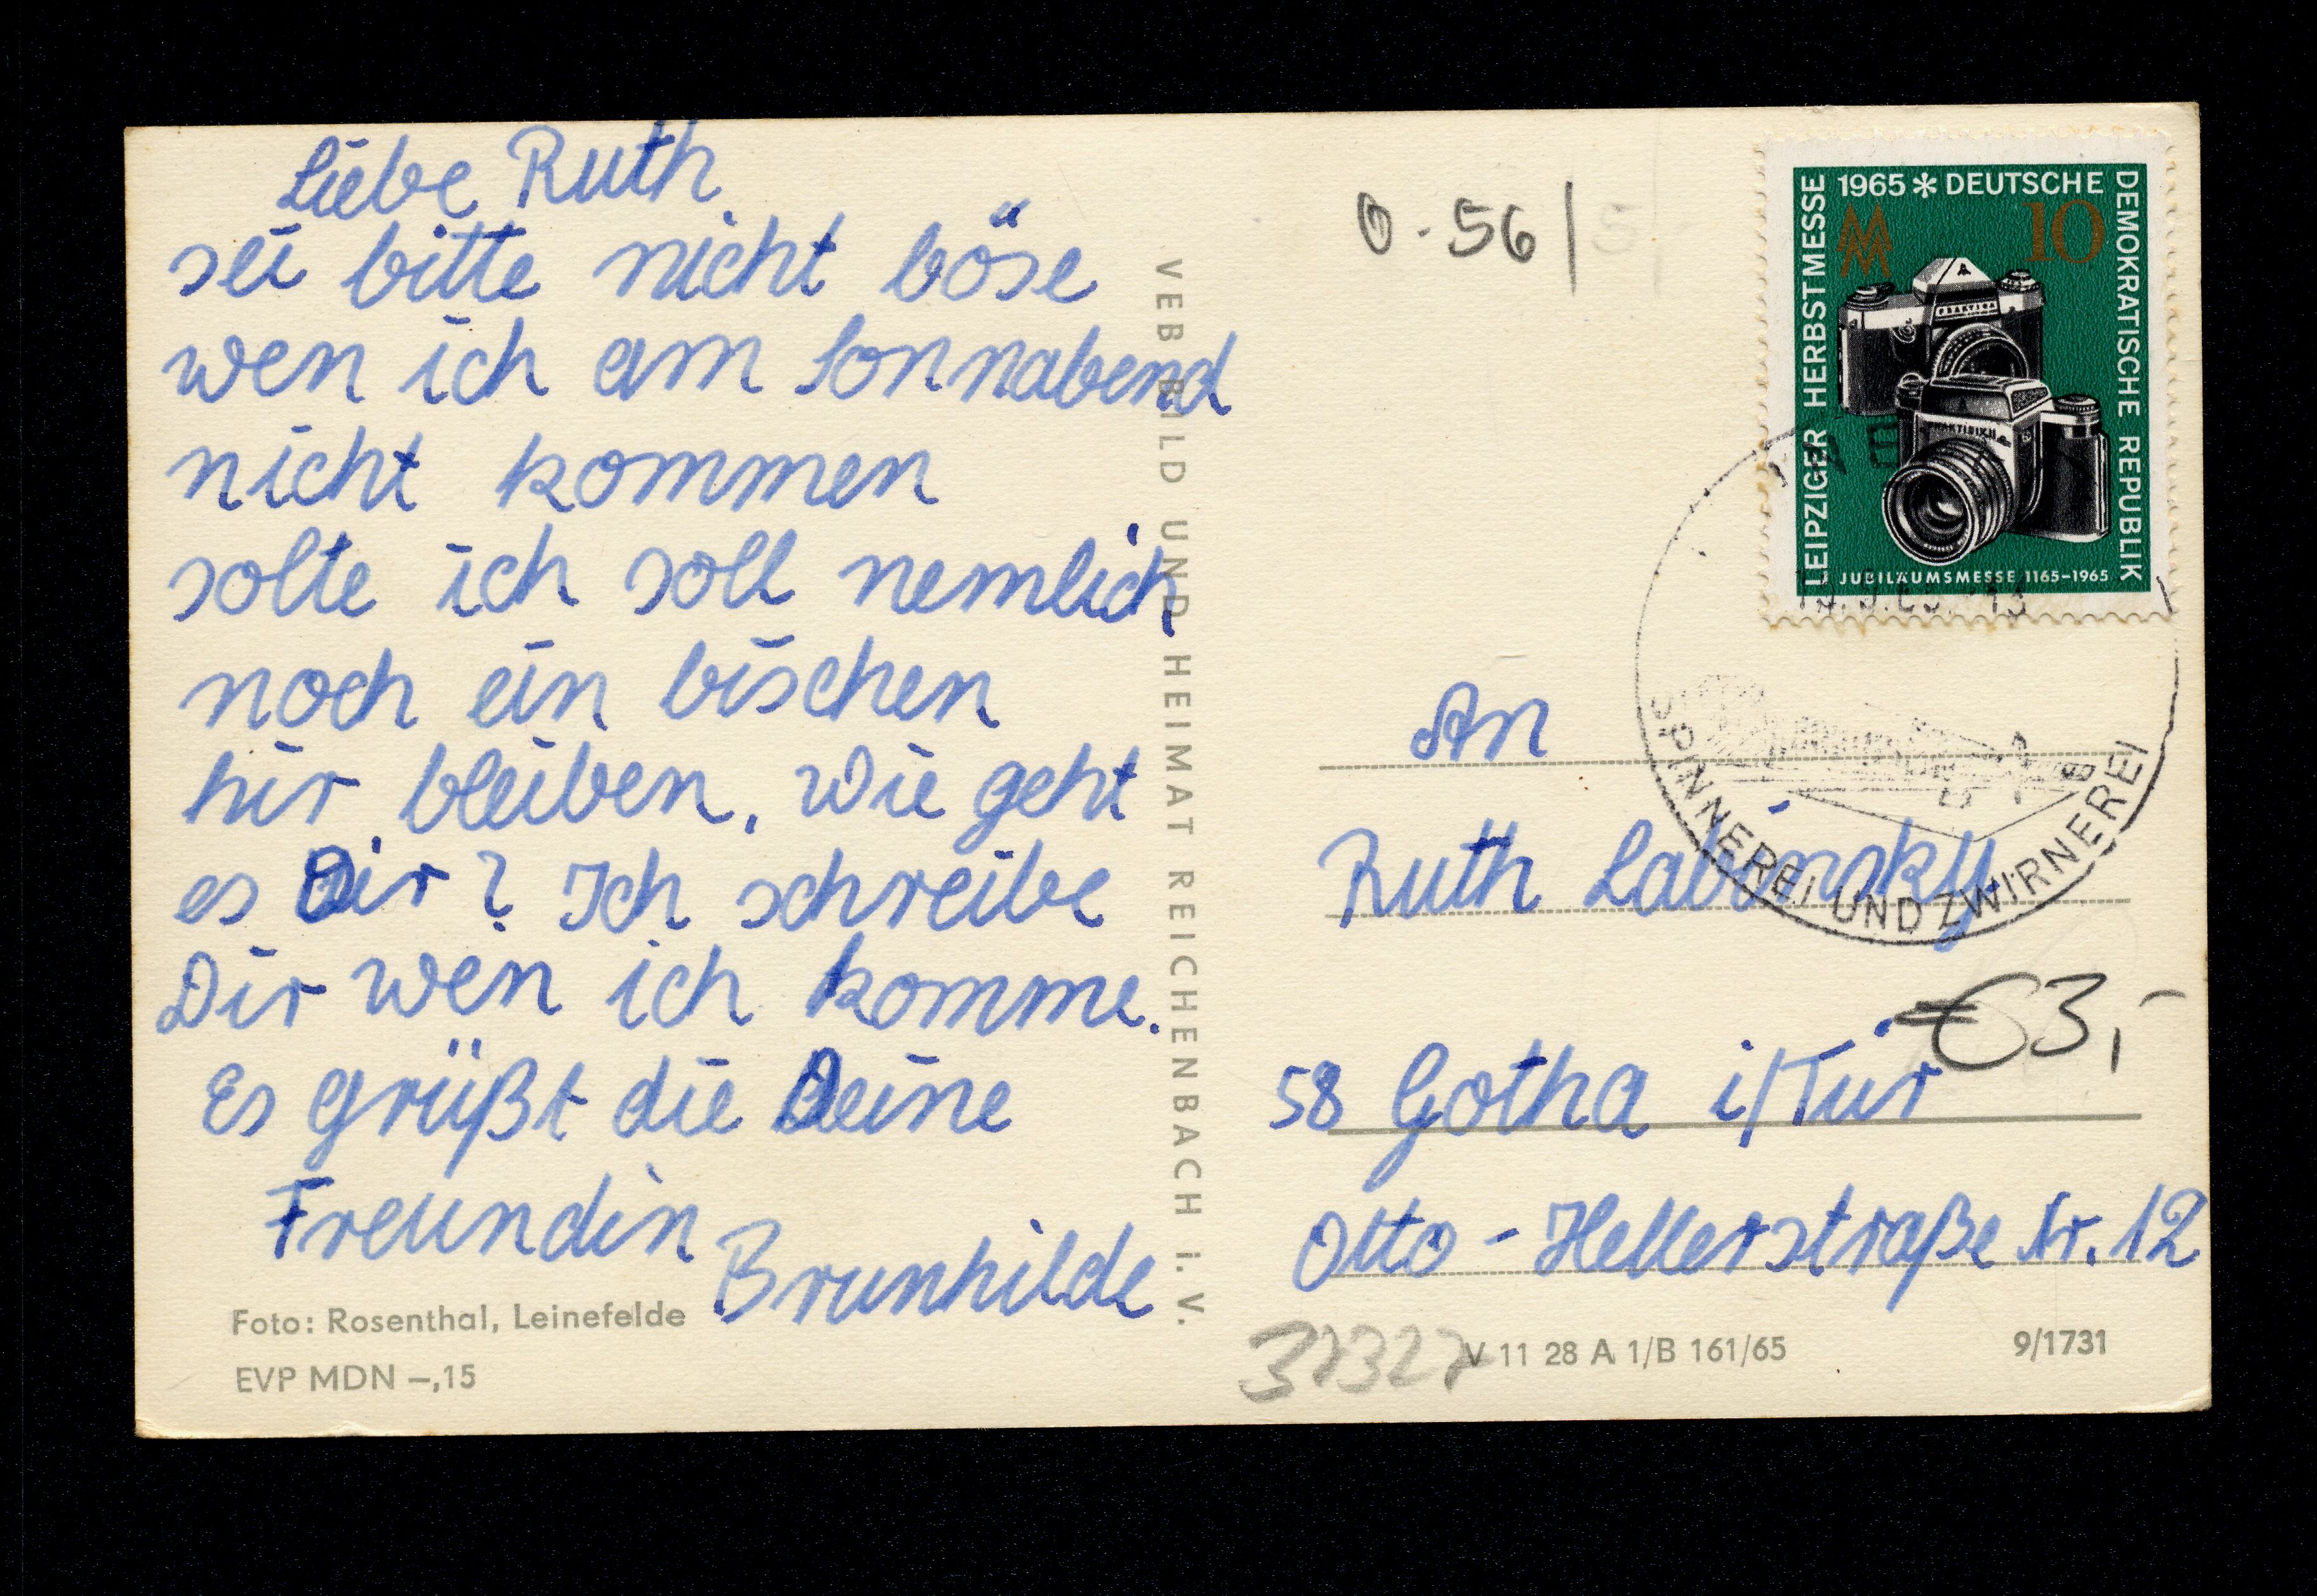 Liebe Ruth
sei bitte nicht böse
wen ich am Sonnabend
nicht kommen
solte ich soll nemlich
noch ein bischen
hir bleiben. Wie geht
es Dir? Ich schreibe
Dir wen ich komme.
Es grüßt die Deine
Freundin
Brunhilde
Foto: Rosenthal, Leinefelde
EVP MDN –,15
VEB BILD UND HEIMAT REICHENBACH I. V.
0-56/
1965 * DEUTSCHE
DEMOKRATISCHE REPUBLIK
LEIPZIGER HERBSTMESSE
10
PRAKTINA
JUBILÄUMSMESSE 1165–1965
SPINNEREI UND ZWIRNEREI
An
Ruth Labinsky
€3,-
58 Gotha i/Tür
Otto-Hellerstraße Nr. 12
V 11 28 A 1/B 161/65
9/1731